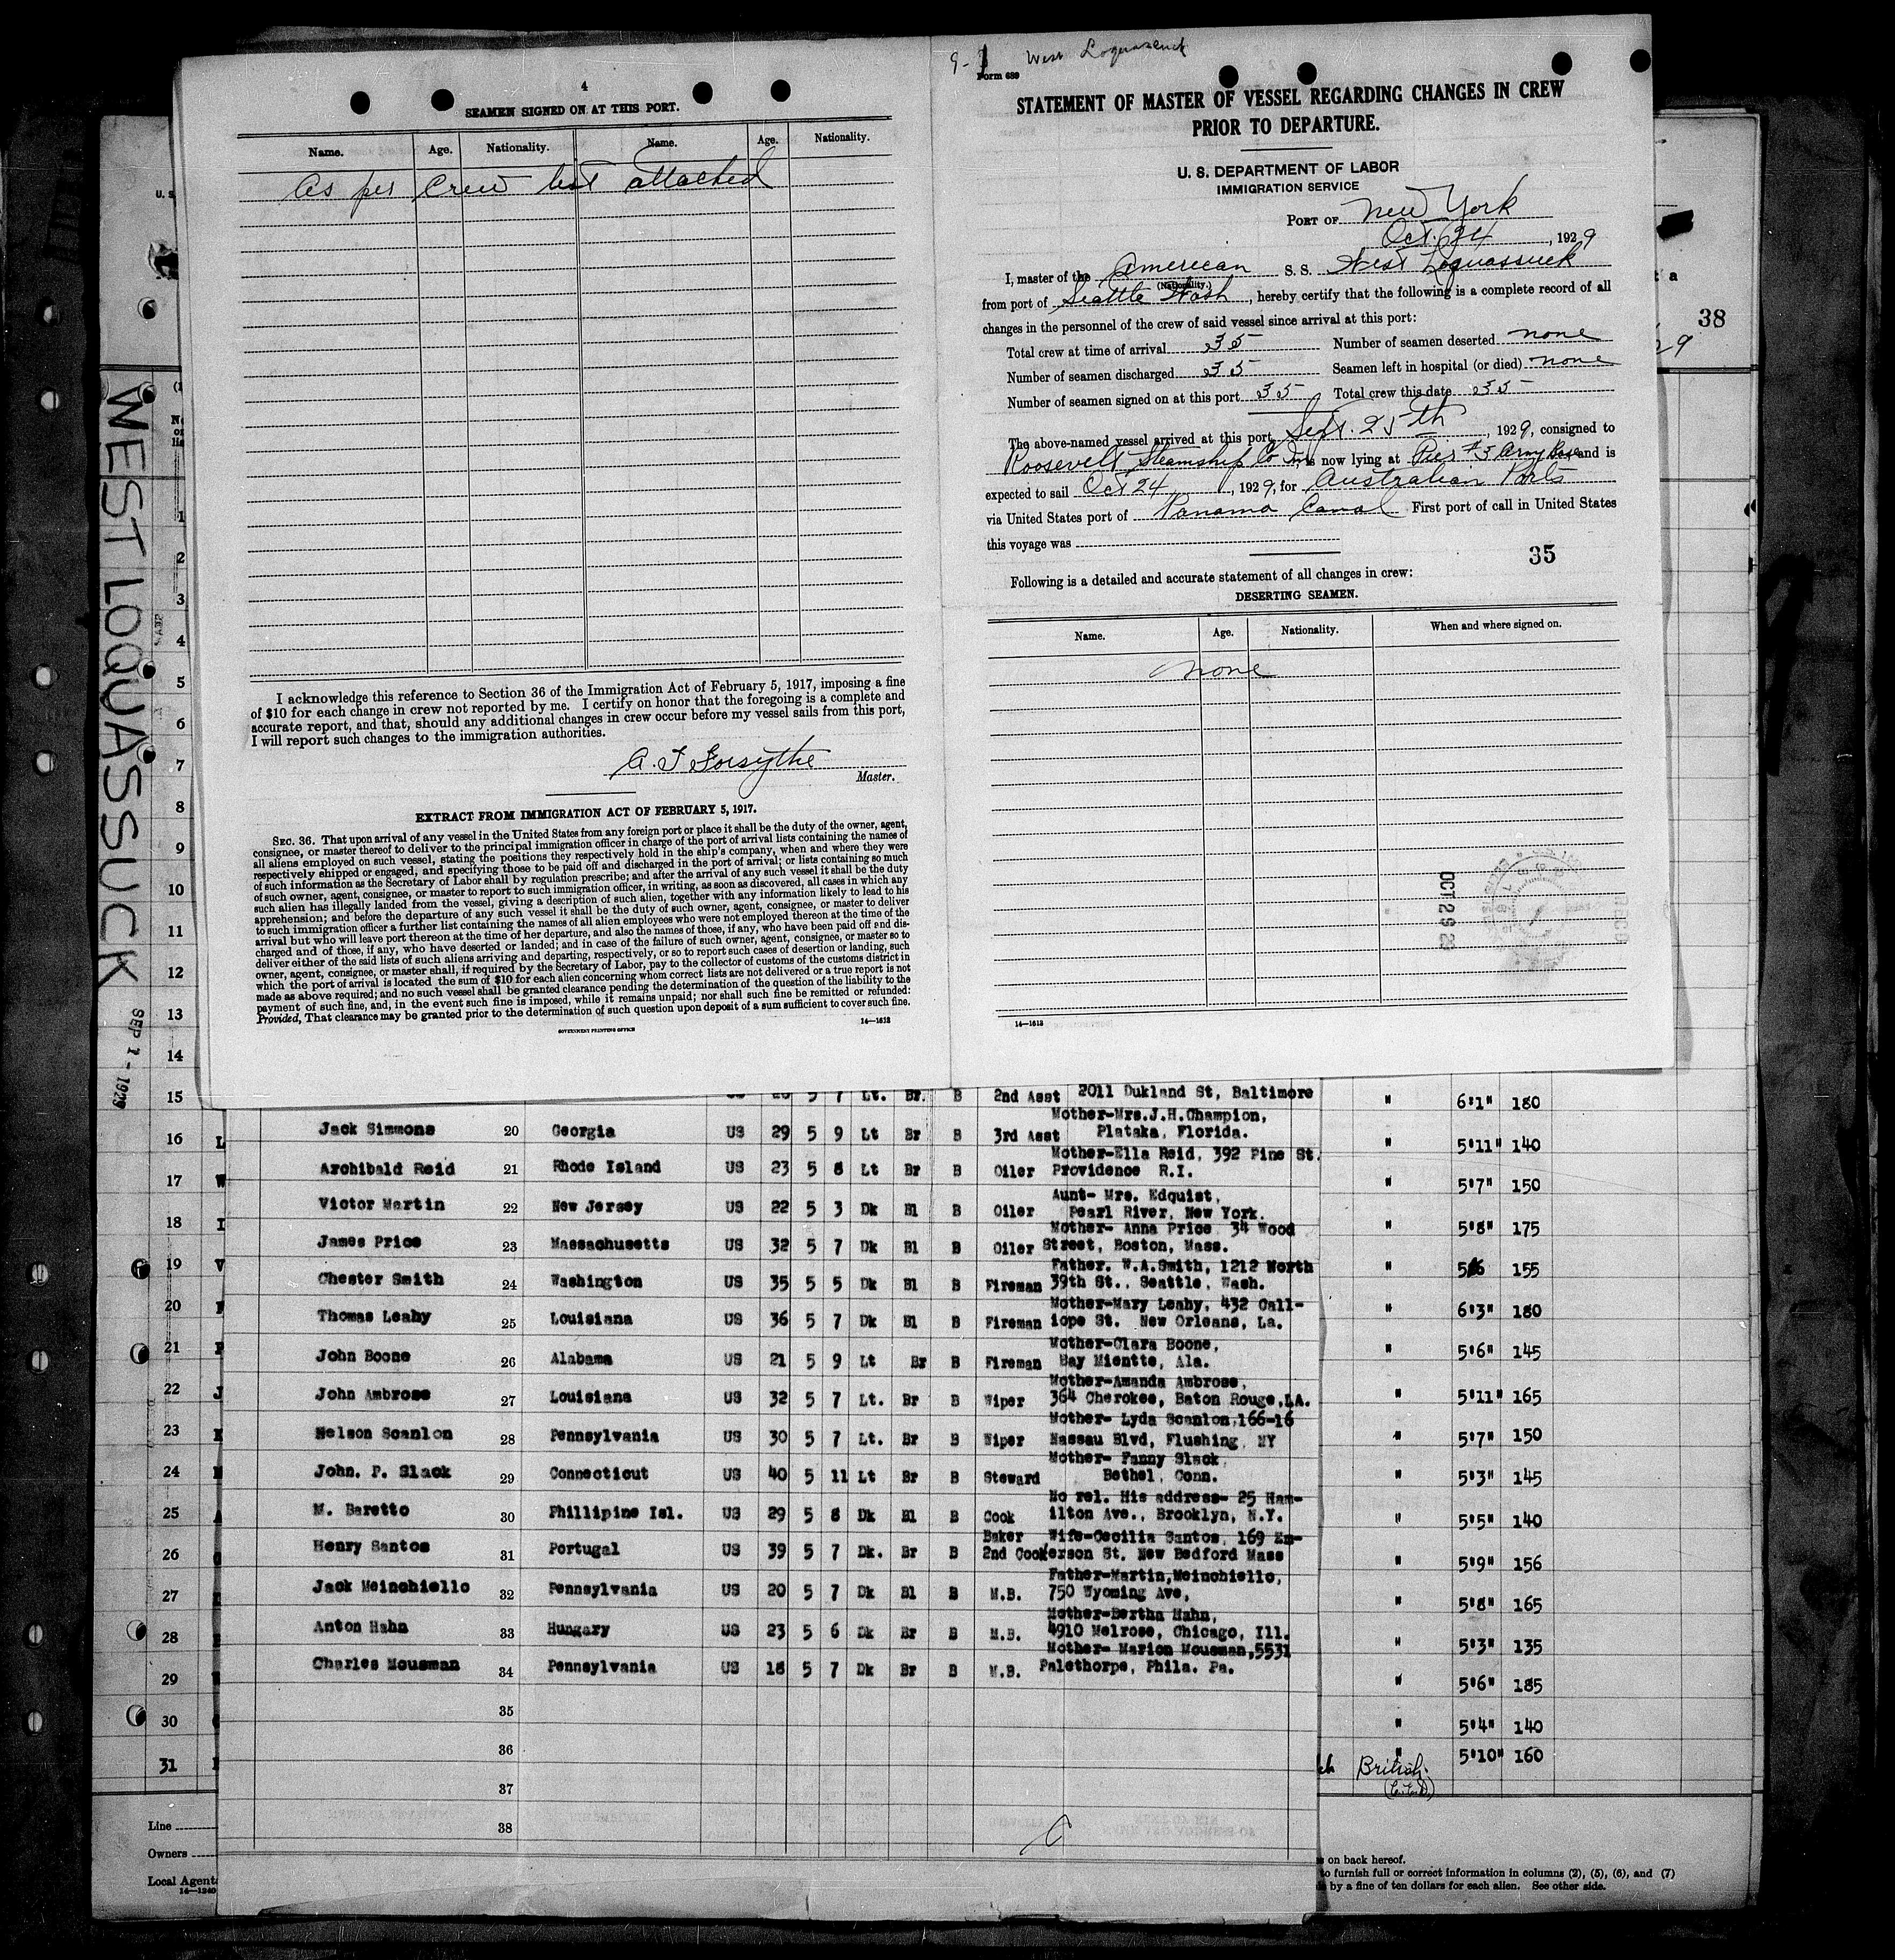 4
SEAMEN SIGNED ON AT THIS PORT.
Name. Age. Nationality. Name. Age. Nationality.
As per Crew list attached
I acknowledge this reference to Section 36 of the Immigration Act of February 5, 1917, imposing a fine
of $10 for each change in crew not reported by me. I certify on honor that the foregoing is a complete and
accurate report, and that, should any additional changes in crew occur before my vessel sails from this port,
I will report such changes to the immigration authorities.
A. T Forsythe
Master.
EXTRACT FROM IMMIGRATION ACT OF FEBRUARY 5, 1917.
SEC. 36. That upon arrival of any vessel in the United States from any foreign port or place it shall be the duty of the owner, agent,
consignee, or master thereof to deliver to the principal immigration officer in charge of the port of arrival lists containing the names of
all aliens employed on such vessel, stating the positions they respectively hold in the ship's company, when and where they were
respectively shipped or engaged, and specifying those to be paid off and discharged in the port of arrival; or lists containing so much
of such information as the Secretary of Labor shall by regulation prescribe; and after the arrival of any such vessel it shall be the duty
of such owner, agent, consignee, or master to report to such immigration officer, in writing, as soon as discovered, all cases in which any
such alien has illegally landed from the vessel, giving a description of such alien, together with any information likely to lead to his
apprehension; and before the departure of any such vessel it shall be the duty of such owner, agent, consignee, or master to deliver
to such immigration officer a further list containing the names of all alien employees who were not employed thereon at the time of the
arrival but who will leave port thereon at the time of her departure, and also the names of those, if any, who have been paid off and dis-
charged and of those, if any, who have deserted or landed; and in case of the failure of such owner, agent, consignee, or master so to
deliver either of the said lists of such aliens arriving and departing, respectively, or so to report such cases of desertion or landing, such
owner, agent, consignee, or master shall, if required by the Secretary of Labor, pay to the collector of customs of the customs district in
which the port of arrival is located the sum of $10 for each alien concerning whom correct lists are not delivered or a true report is not
made as above required; and no such vessel shall be granted clearance pending the determination of the question of the liability to the
payment of such fine, and, in the event such fine is imposed, while it remains unpaid; nor shall such fine be remitted or refunded:
Provided, That clearance may be granted prior to the determination of such question upon deposit of a sum sufficient to cover such fine.
GOVERNMENT PRINTING OFFICE
14—1613
West Loquassuck
Form 689
STATEMENT OF MASTER OF VESSEL REGARDING CHANGES IN CREW
PRIOR TO DEPARTURE.
U. S. DEPARTMENT OF LABOR
IMMIGRATION SERVICE
PORT OF New York
Oct. 24, 1929
I, master of the American S. S. West Loquassuck
(Nationality.)
from port of Seattle Wash, hereby certify that the following is a complete record of all
changes in the personnel of the crew of said vessel since arrival at this port:
Total crew at time of arrival 35 Number of seamen deserted none
Number of seamen discharged 35 Seamen left in hospital (or died) none
Number of seamen signed on at this port 35 Total crew this date 35
The above-named vessel arrived at this port Sept. 25th, 1929, consigned to
Roosevelt Steamship Co Inc, is now lying at Pier #3 Army Base and is
expected to sail Oct 24, 1929, for Australian Ports
via United States port of Panama Canal First port of call in United States
this voyage was
35
Following is a detailed and accurate statement of all changes in crew:
DESERTING SEAMEN.
Name. Age. Nationality. When and where signed on.
none
OCT 29 29
14—1613
38
29
WEST LOQUASSUCK
SEP 1 - 1929
1
2
3
4
5
6
7
8
9
10
11
12
13
14
15 5 7 Lt. Br. B 2nd Asst 2011 Dukland St, Baltimore " 6'1" 180
16 Jack Simmons 20 Georgia US 29 5 9 Lt Br B 3rd Asst Mother-Mrs.J.H.Champion, Plataka, Florida. " 5'11" 140
17 Archibald Reid 21 Rhode Island US 23 5 8 Lt Br B Oiler Mother-Ella Reid, 392 Pine St. Providence R.I. " 5'7" 150
18 Victor Martin 22 New Jersey US 22 5 3 Dk Bl B Oiler Aunt- Mrs. Edquist, Pearl River, New York. " 5'8" 175
19 James Price 23 Massachusetts US 32 5 7 Dk Bl B Oiler Mother- Anna Price 34 Wood Street, Boston, Mass. " 5'6 155
20 Chester Smith 24 Washington US 35 5 5 Dk Bl B Fireman Father. W.A.Smith, 1212 North 39th St., Seattle, Wash. " 6'3" 180
21 Thomas Leahy 25 Louisiana US 36 5 7 Dk Bl B Fireman Mother-Mary Leahy, 432 Call- iope St. New Orleans, La. " 5'6" 145
22 John Boone 26 Alabama US 21 5 9 Lt Br B Fireman Mother-Clara Boone, Bay Mientte, Ala. " 5'11" 165
23 John Ambrose 27 Louisiana US 32 5 7 Lt. Br B Wiper Mother-Amanda Ambrose, 364 Cherokee, Baton Rouge,LA. " 5'7" 150
24 Nelson Scanlon 28 Pennsylvania US 30 5 7 Lt. Br B Wiper Mother- Lyda Scanlon,166-16 Nassau Blvd, Flushing, NY " 5'3" 145
25 John. P. Slack 29 Connecticut US 40 5 11 Lt Br B Steward Mother- Fanny Slack, Bethel, Conn. " 5'5" 140
26 M. Baretto 30 Phillipine Isl. US 29 5 8 Dk Bl B Cook No rel. His address- 25 Ham- ilton Ave., Brooklyn, N.Y. " 5'9" 156
27 Henry Santos 31 Portugal US 39 5 7 Dk. Br B Baker 2nd Cook Wife-Cecilia Santos, 169 Em- erson St. New Bedford Mass " 5'8" 165
28 Jack Meinchiello 32 Pennsylvania US 20 5 7 Dk Bl B M.B. Father-Martin,Meinchiello, 750 Wyoming Ave, " 5'3" 135
29 Anton Hahn 33 Hungary US 23 5 6 Dk Br B M.B. Mother-Bertha Hahn, 4910 Melrose, Chicago, Ill. " 5'6" 185
30 Charles Mousman 34 Pennsylvania US 18 5 7 Dk Br B M.B. Mother- Marion Mousman,5531 Palethorpe, Phila. Pa. " 5'4" 140
31 35 British " 5'10" 160
36
37
38
Line
Owners
Local Agents
14—1240
on back hereof.
to furnish full or correct information in columns (2), (5), (6), and (7)
by a fine of ten dollars for each alien. See other side.